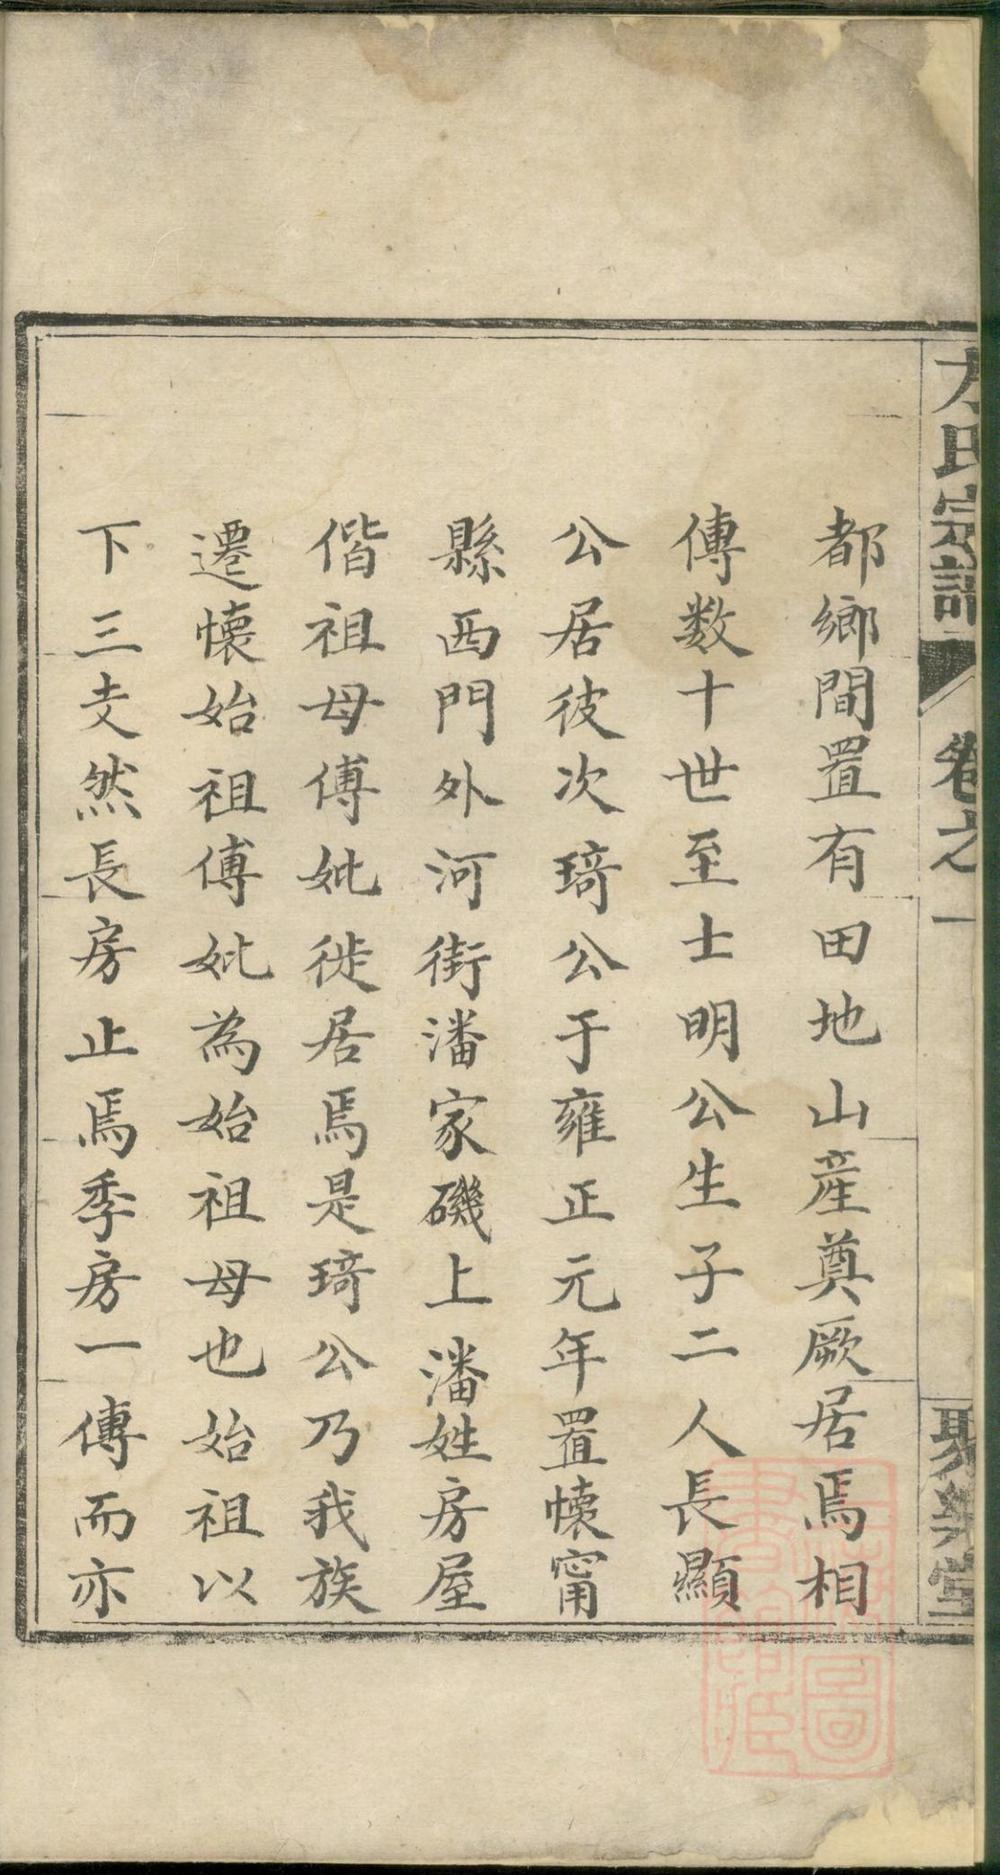 方氏宗譜 卷之一 聚樂堂
都鄉間置有田地山産奠厥居焉相
傳数十世至士明公生子二人長顯
公居彼次琦公于雍正元年置懐甯
縣西門外河街潘家磯上潘姓房屋
偕祖母傅妣徙居焉是琦公乃我族
遷懐始祖傅妣為始祖母也始祖以
下三支然長房止焉季房一傳而亦